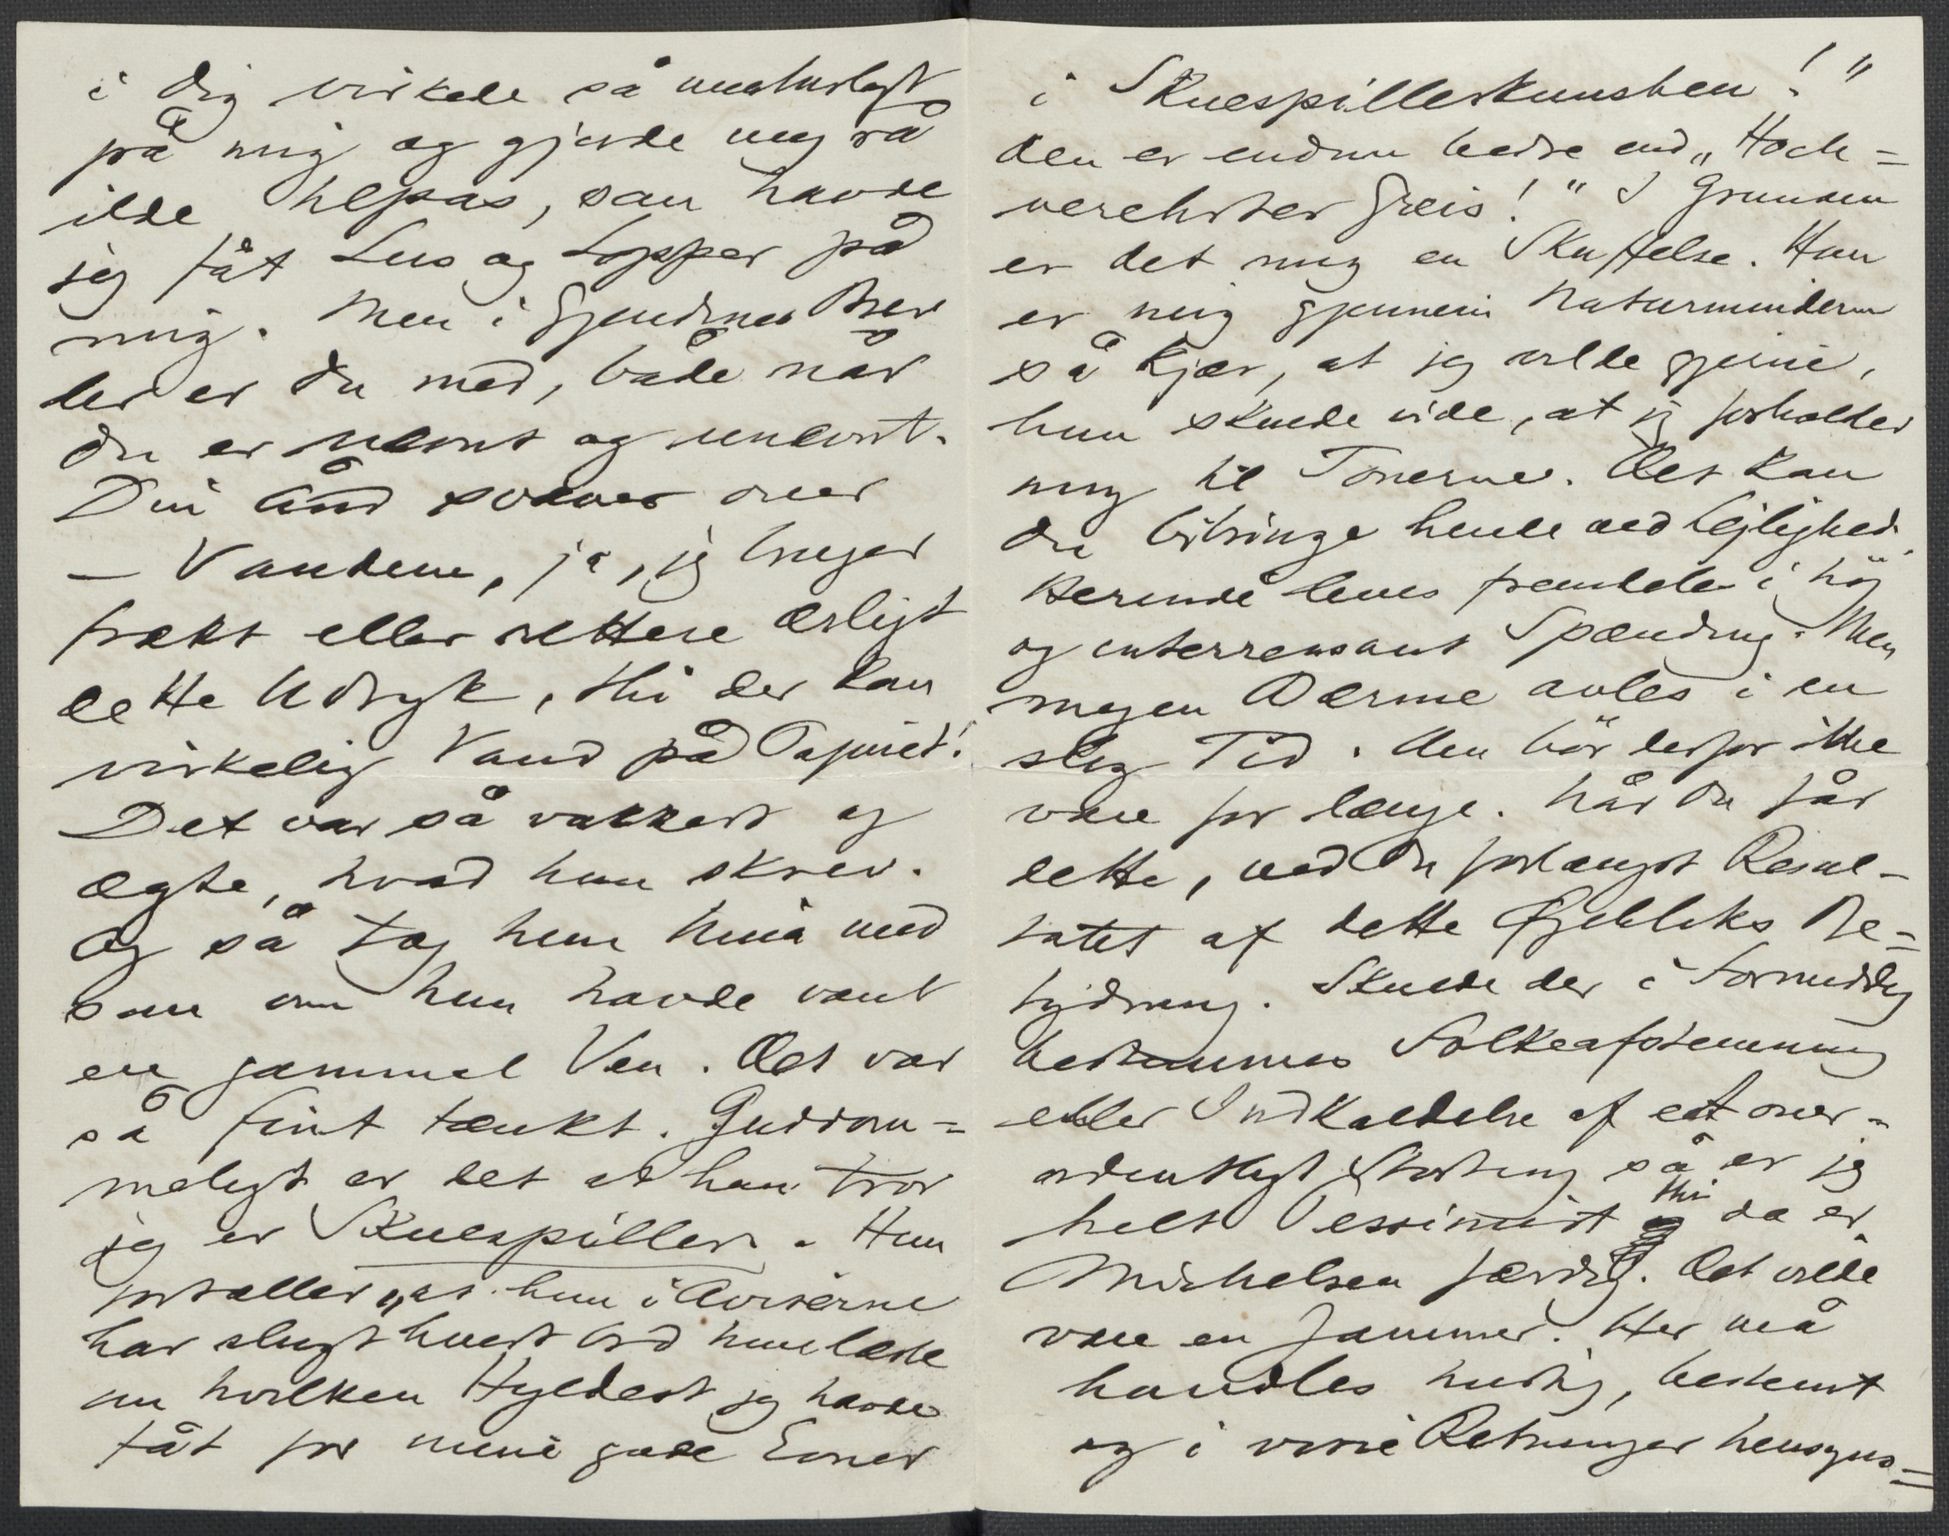 i Dig virkede så unaturligt
på mig og gjorde mig så
ilde tilpas, som havde
jeg fåt Lus og Lopper på
mig. Men i Gjendines Brev
der er Du med, både når
Du er nævnt og unævnt.
Din Ånd svæver over
– Vandene, ja, jeg bruger
frækt eller rettere ærligt
dette Udtryk, thi der kom
virkelig Vand på Papiret!
Det var så vakkert og
ægte, hvad hun skrev.
Og så tog hun Nina med
som om hun havde vært
en gammel Ven. Det var
så fint tænkt. Guddom=
meligt er det at hun tror
jeg er Skuespiller. Hun
fortæller, at hun i Aviserne
har slugt hvert Ord hun læste
om hvilken Hyldest jeg havde
fåt for mine gode Evner
i Skuespillerkunsten!"
Den er endnu bedre end „Hoch=
verehrter Greis!" I Grunden
er det mig en Skuffelse. Hun
er mig gjennem Naturminderne
så kjær, at jeg vilde gjerne,
hun skulde vide, at jeg forholder
mig til Tonerne. Det kan
Du bibringe hende ved Lejlighed.
Herinde leves fremdeles i høj
og interressant Spænding. Men
megen Værme avles i en
slig Tid. Den bör derfor ikke
vare for længe. Når Du får
dette, ved Du forlængst Resul-
tatet af dette Øjebliks Be=
tydning. Skulde der i Formiddag
bestemmes Folkeafstemning
eller Indkaldelse af et over-
ordentligt Storting så er jeg
helt Pessimist thi da er
Michelsen færdig. Det vilde
være en Jammer. Her må
handles hurtig, bestemt
og i visse Retninger hensyns=